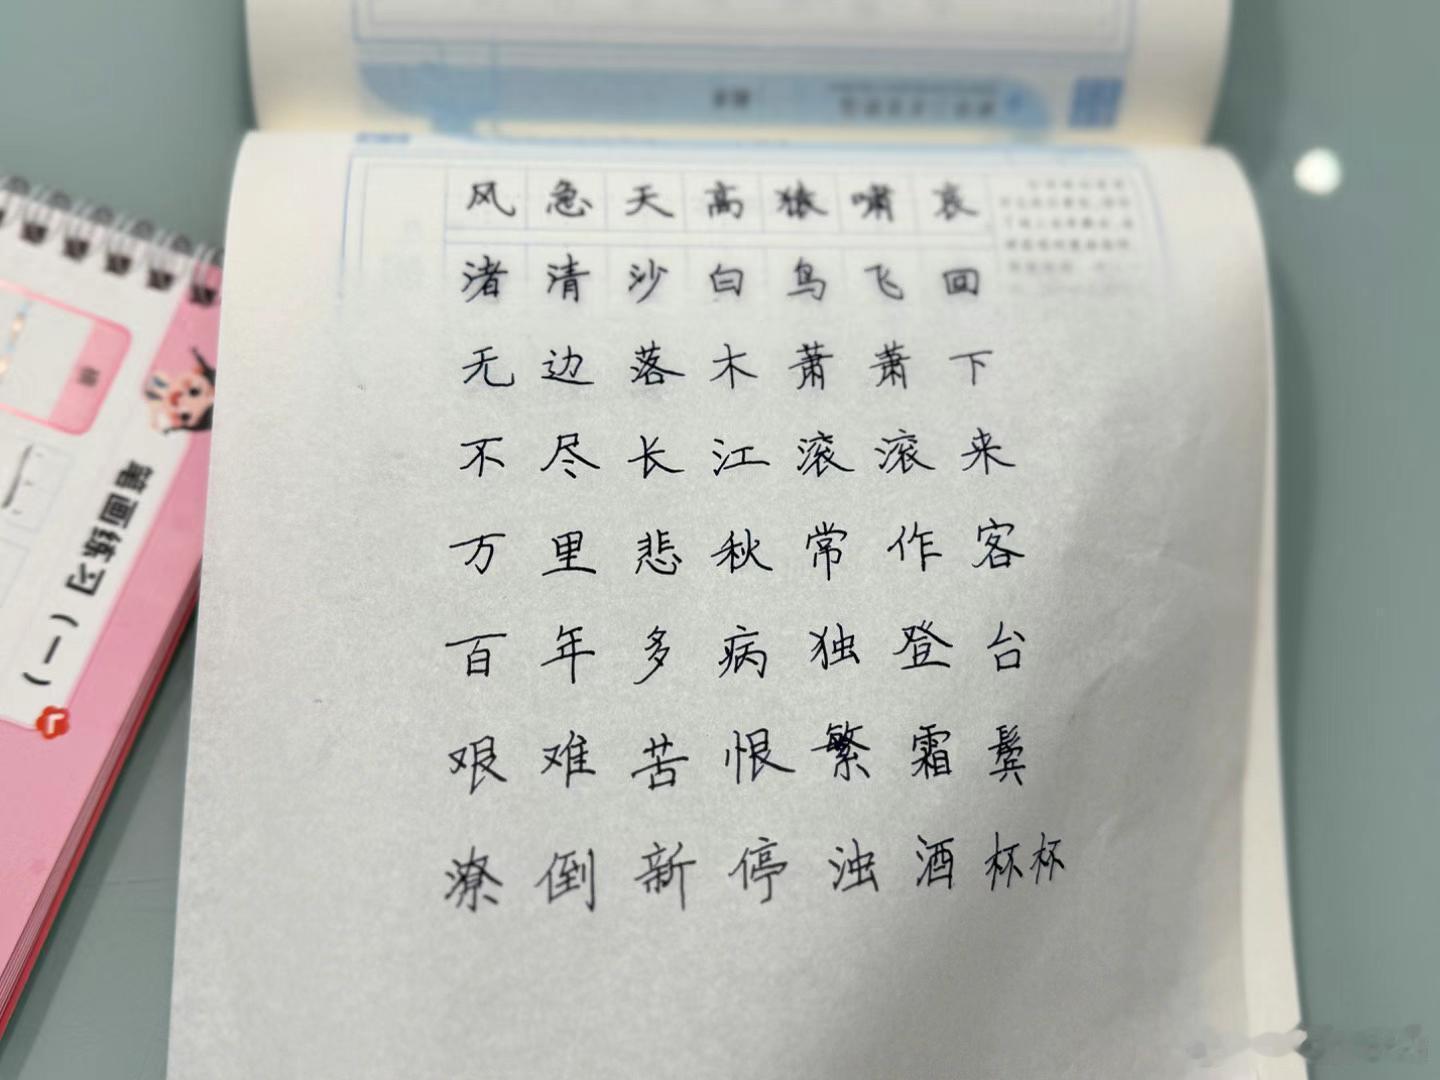 风急天高猿啸哀
渚清沙白鸟飞回
无边落木萧萧下
不尽长江滚滚来
万里悲秋常作客
百年多病独登台
艰难苦恨繁霜鬓
潦倒新停浊酒杯杯
笔画练习(一)